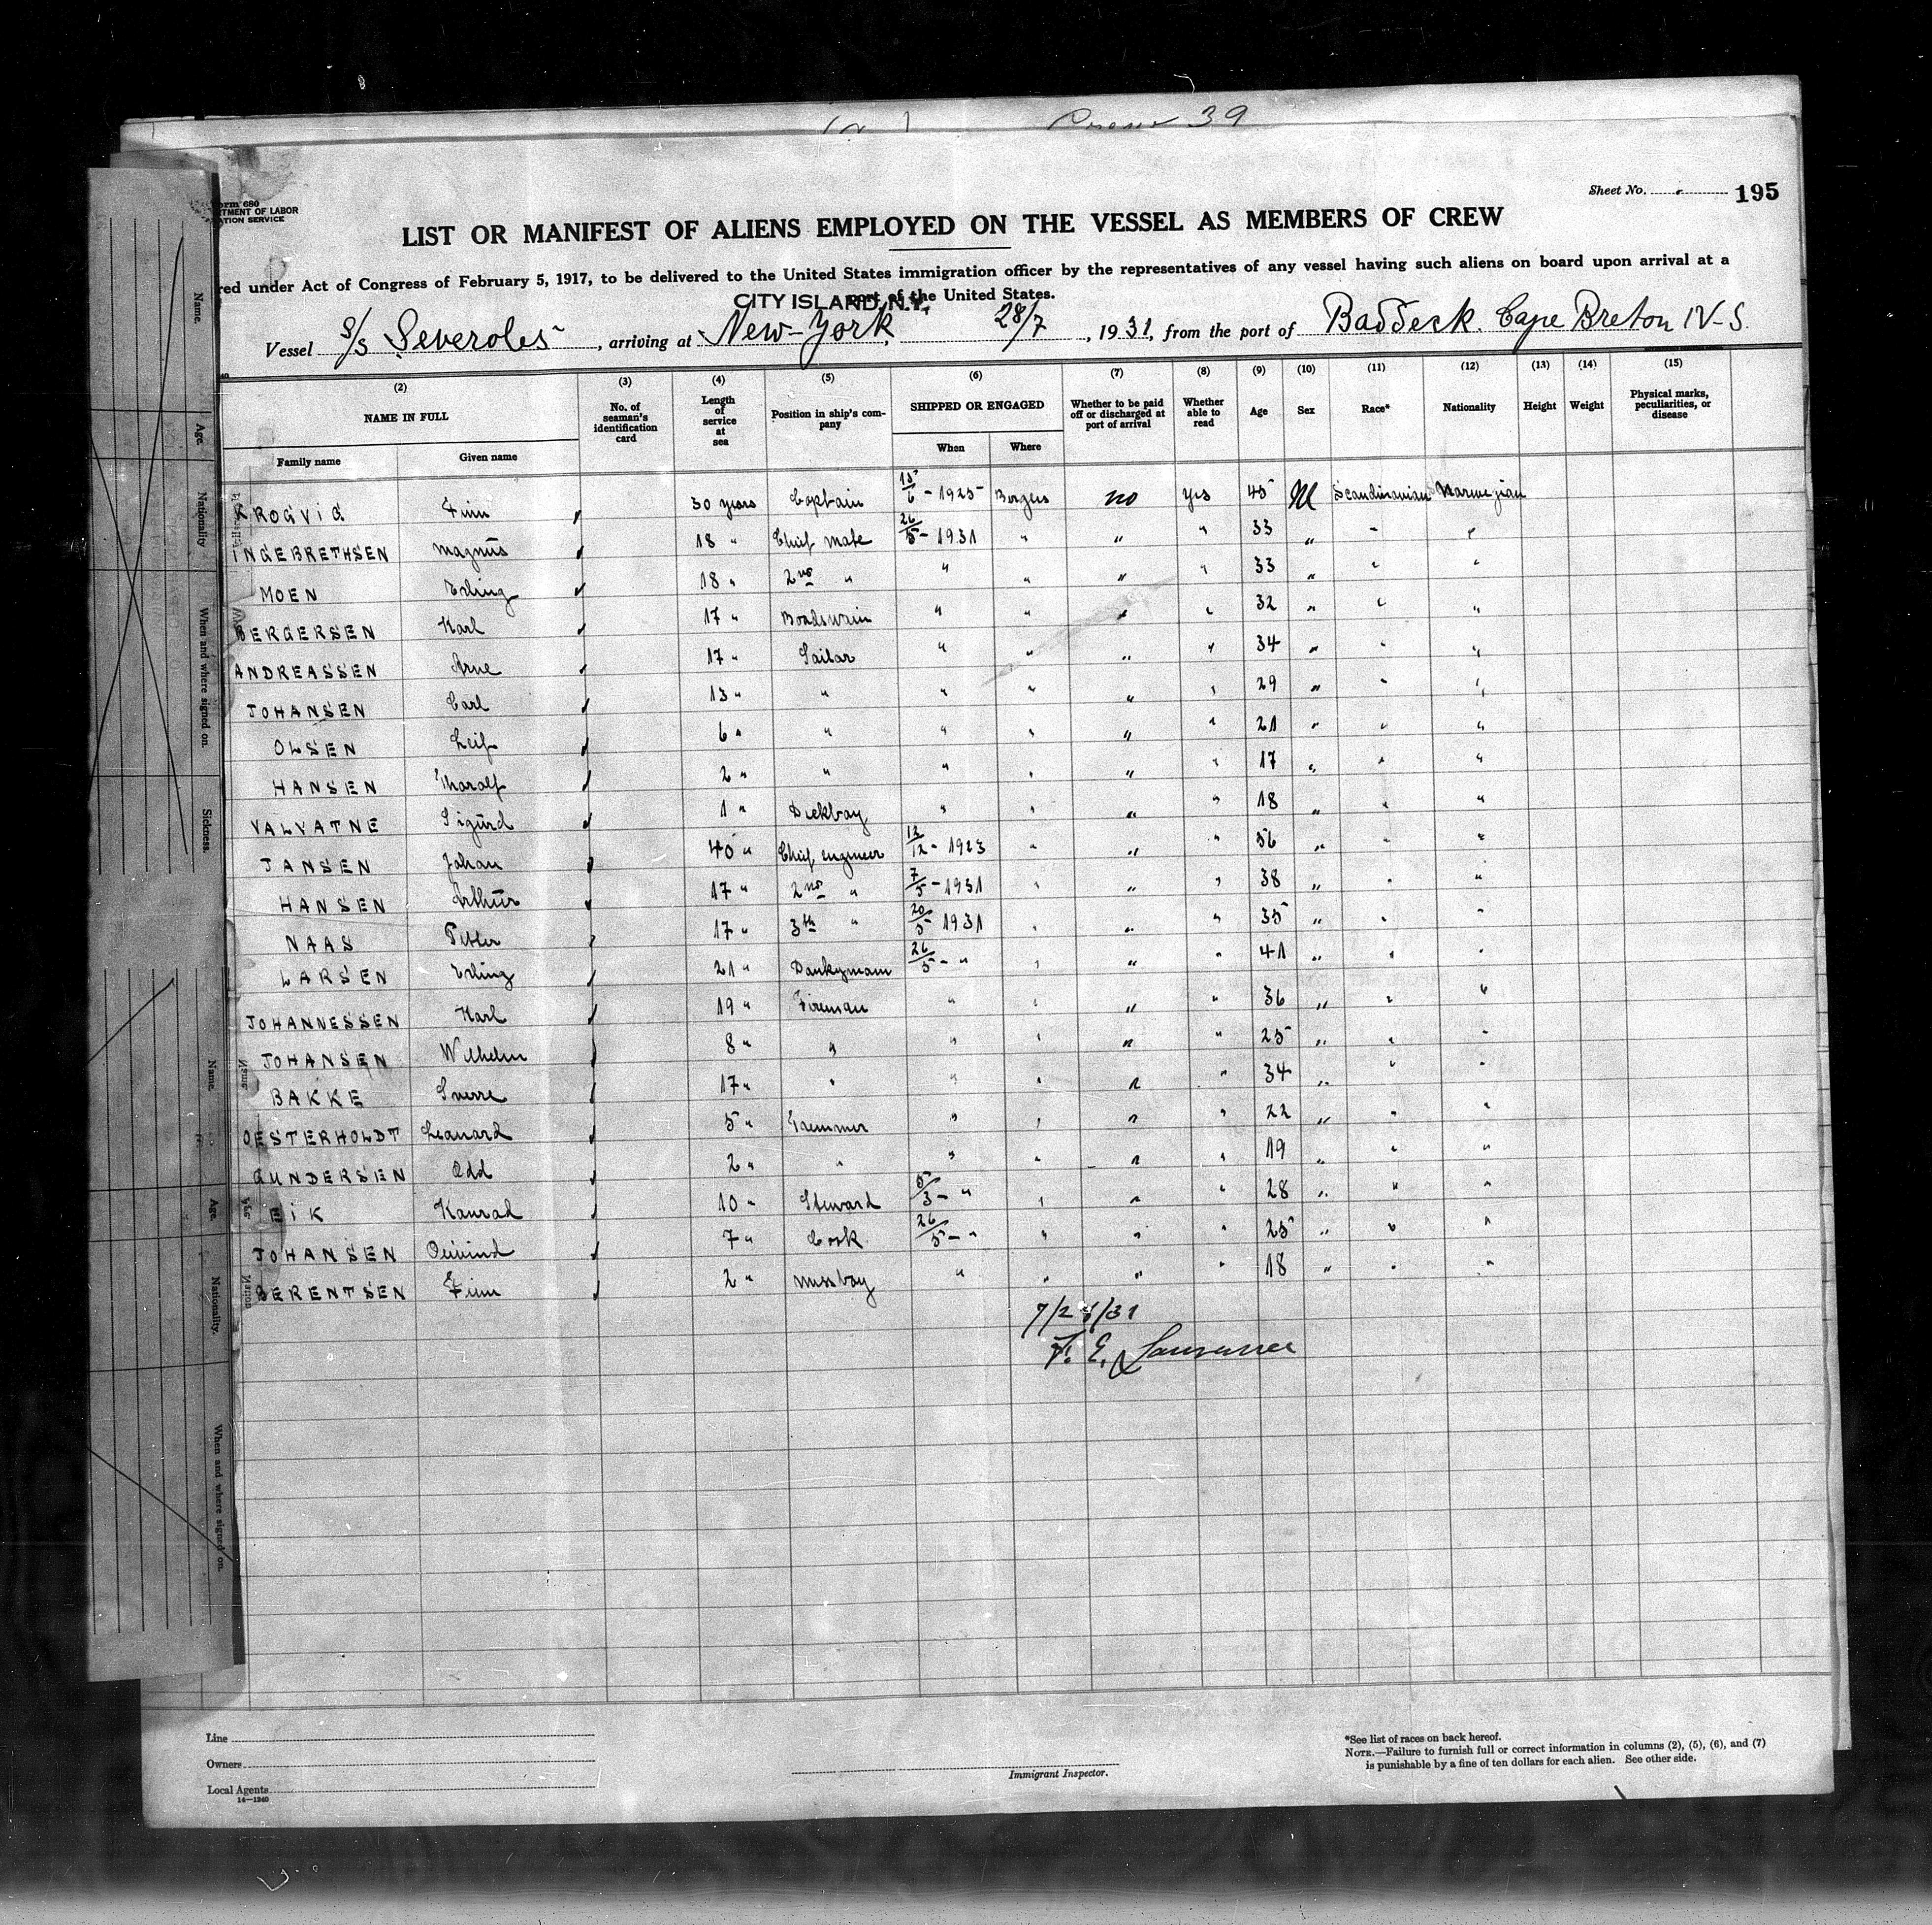 39
Sheet No. 195
Form 680
DEPARTMENT OF LABOR
IMMIGRATION SERVICE
LIST OR MANIFEST OF ALIENS EMPLOYED ON THE VESSEL AS MEMBERS OF CREW
red under Act of Congress of February 5, 1917, to be delivered to the United States immigration officer by the representatives of any vessel having such aliens on board upon arrival at a
port of the United States.
CITY ISLAND, N.Y.
Vessel S/S Severoles, arriving at New-York, 28/7, 1931, from the port of Baddeck. Cape Breton N-S.
(2) (3) (4) (5) (6) (7) (8) (9) (10) (11) (12) (13) (14) (15)
NAME IN FULL No. of seaman's identification card Length of service at sea Position in ship's company SHIPPED OR ENGAGED Whether to be paid off or discharged at port of arrival Whether able to read Age Sex Race* Nationality Height Weight Physical marks, peculiarities, or disease
Family name Given name When Where
KROGVIG Finn 30 years Captain 15/6 - 1925 Bergen no yes 45 M Scandinavian Norwegian
INGEBRETHSEN Magnus 18 " Chief mate 26/5 - 1931 " " " 33 " " "
MOEN Erling 18 " 2nd " " " " " 33 " " "
BERGERSEN Karl 17 " Boadswain " " " " 32 " " "
ANDREASSEN Arne 17 " Sailor " " " " 34 " " "
JOHANSEN Carl 13 " " " " " " 29 " " "
OLSEN Leif 6 " " " " " " 21 " " "
HANSEN Tharalf 2 " " " " " " 17 " " "
VALVATNE Sigurd 1 " Deckboy " " " " 18 " " "
JANSEN Johan 40 " Chief engineer 12/12 - 1923 " " " 56 " " "
HANSEN Arthur 17 " 2nd " 7/5 - 1931 " " " 38 " " "
NAAS Petter 17 " 3th " 20/5 - 1931 " " " 35 " " "
LARSEN Erling 21 " Donkyman 26/5 - " " " " 41 " " "
JOHANNESSEN Karl 19 " Fireman " " " " 36 " " "
JOHANSEN Wilhelm 8 " " " " " " 25 " " "
BAKKE Sverre 17 " " " " " " 34 " " "
OESTERHOLDT Leonard 5 " Tremmer " " " " 22 " " "
GUNDERSEN Odd 2 " " " " " " 19 " " "
IK Konrad 10 " Steward 5/3 - " " " " 28 " " "
JOHANSEN Oeivind 7 " Cook 26/5 - " " " " 25 " " "
BERENTSEN Finn 2 " Messboy " " " " 18 " " "
7/28/31
F. E. Lawrence
Name.
Age.
Nationality
When and where signed on.
Sickness.
Name.
Age.
Nationality.
When and where signed on.
Line
Owners
Local Agents
14—1240
Immigrant Inspector.
*See list of races on back hereof.
NOTE.—Failure to furnish full or correct information in columns (2), (5), (6), and (7)
is punishable by a fine of ten dollars for each alien. See other side.